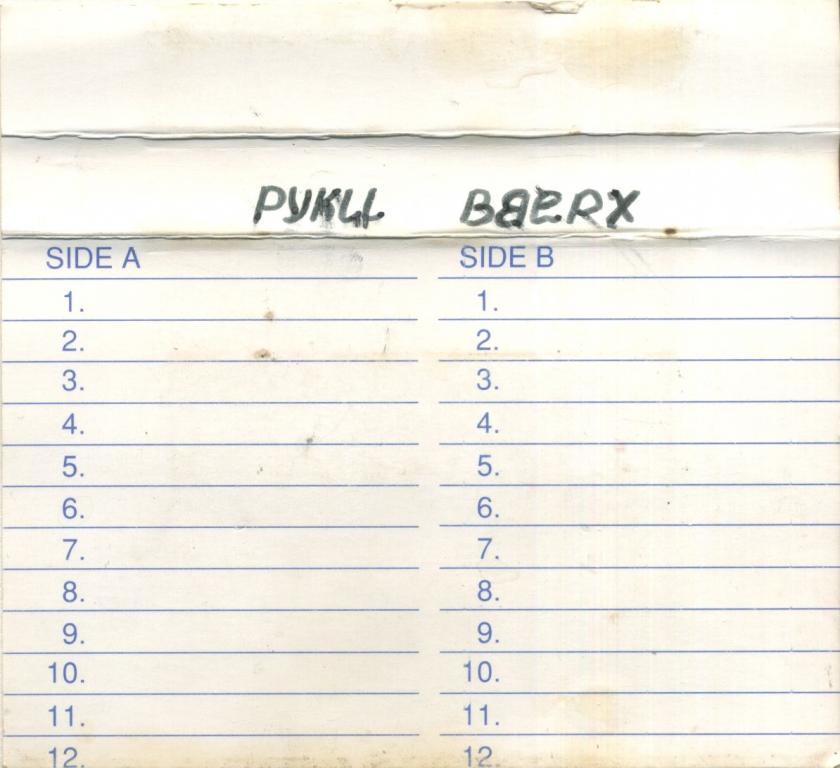 РУКИ ВВЕRХ
SIDE A SIDE B
1. 1.
2. 2.
3. 3.
4. 4.
5. 5.
6. 6.
7. 7.
8. 8.
9. 9.
10. 10.
11. 11.
12. 12.